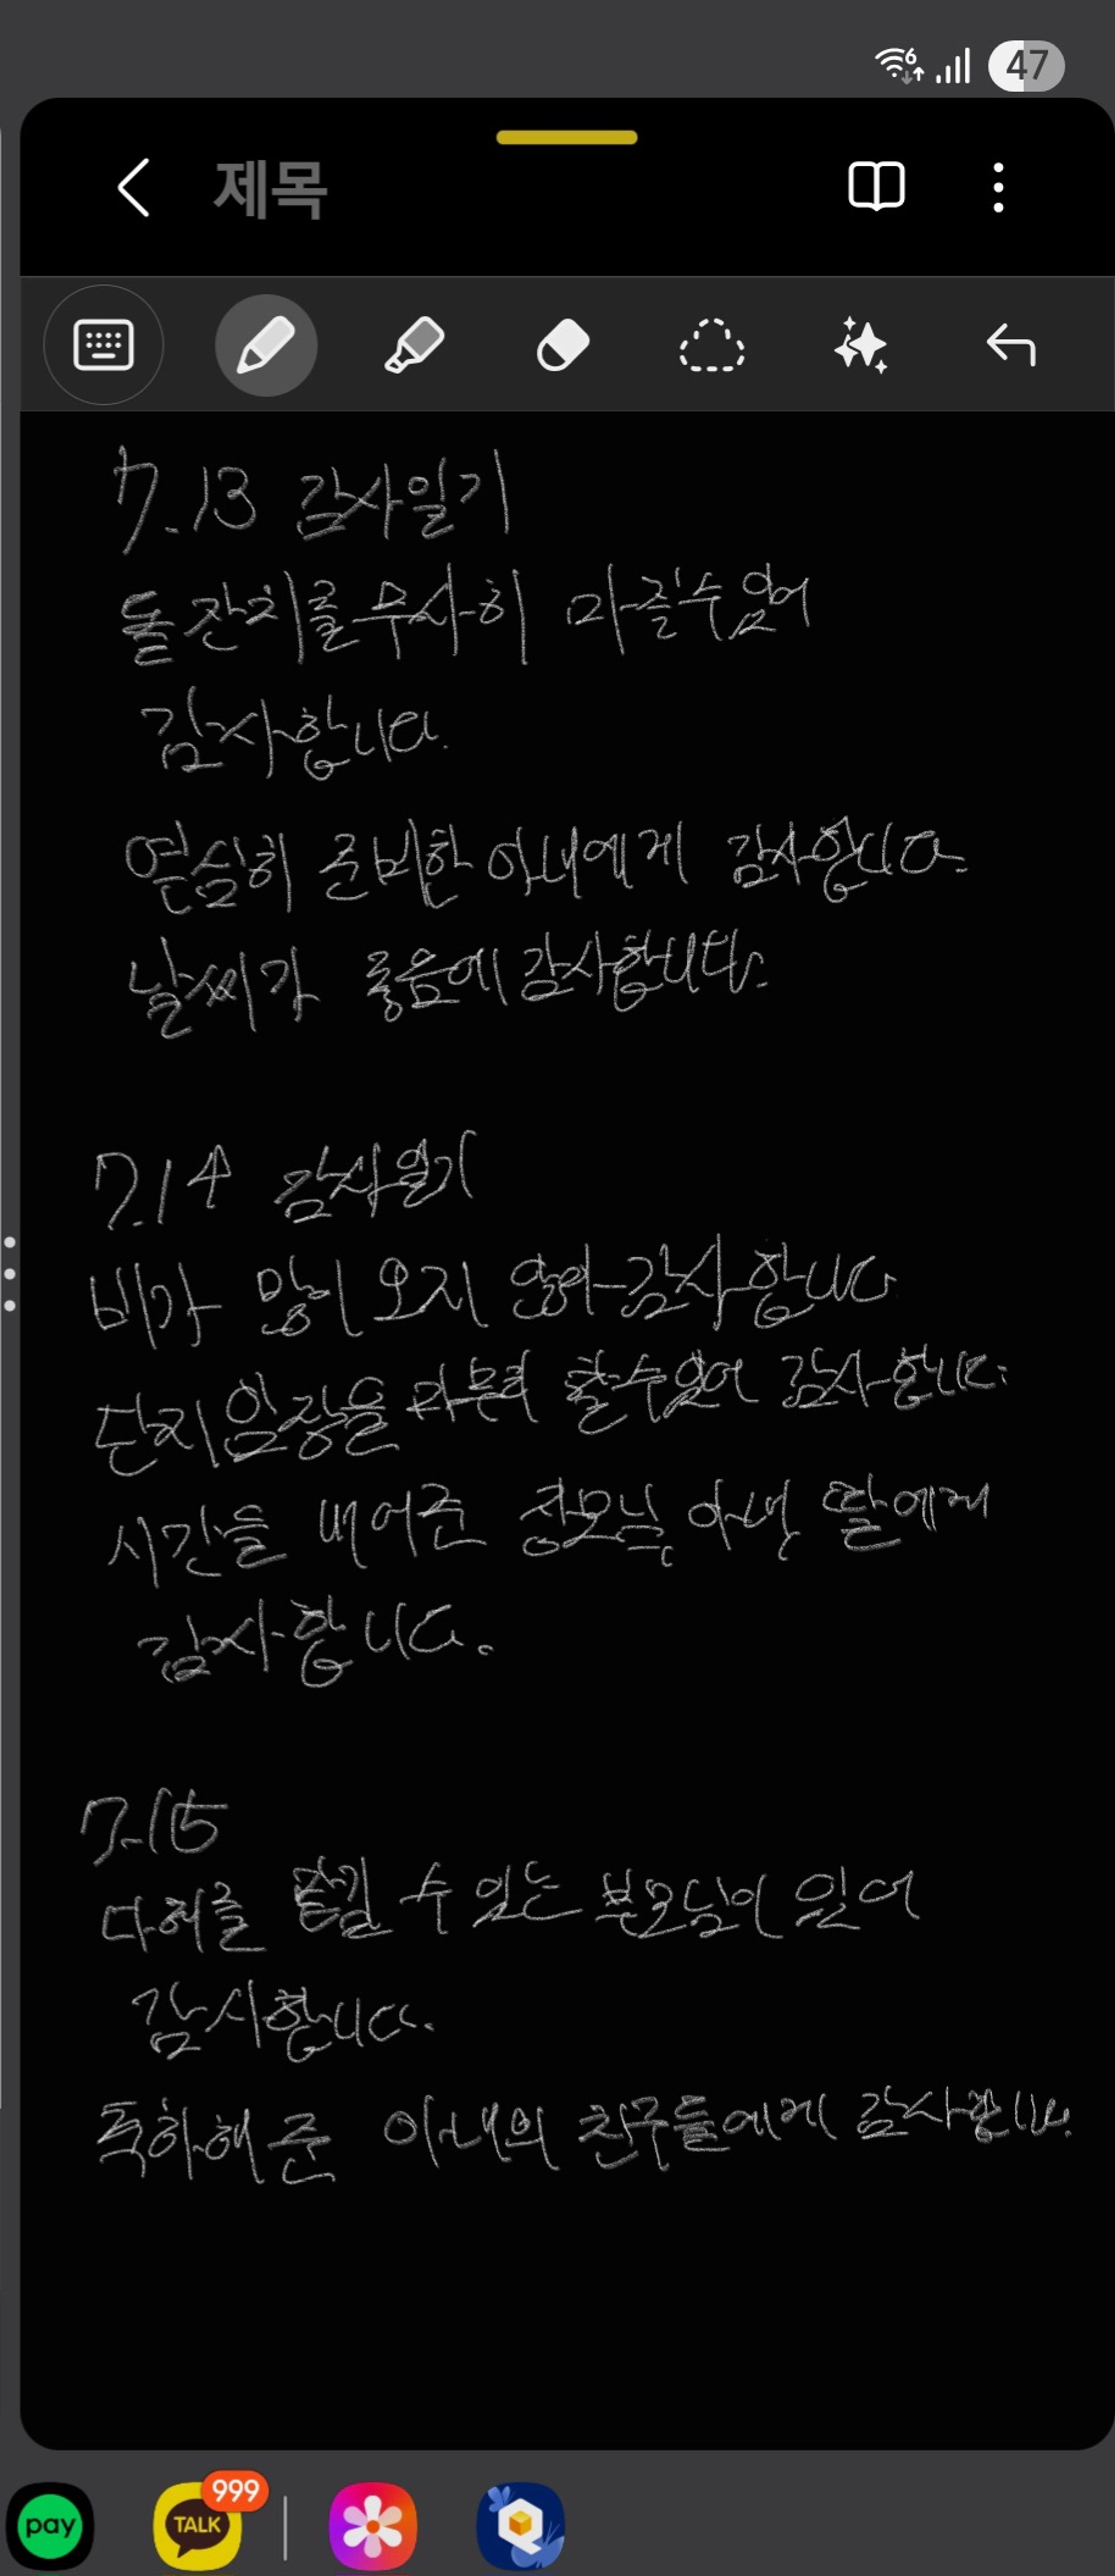 6
47
제목
7.13 감사일기
돌잔치를 무사히 마칠수있어
감사합니다.
열심히 준비한 아내에게 감사합니다.
날씨가 좋음에 감사합니다.
7.14 감사일기
비가 많이 오지 않아 감사합니다
단지임장을 마무리 할수있어 감사합니다.
시간을 내어준 장모님, 아내, 딸에게
감사합니다.
7.15
다희를 맡길 수 있는 부모님이 있어
감사합니다.
축하해준 아내의 친구들에게 감사합니다.
pay
TALK
999